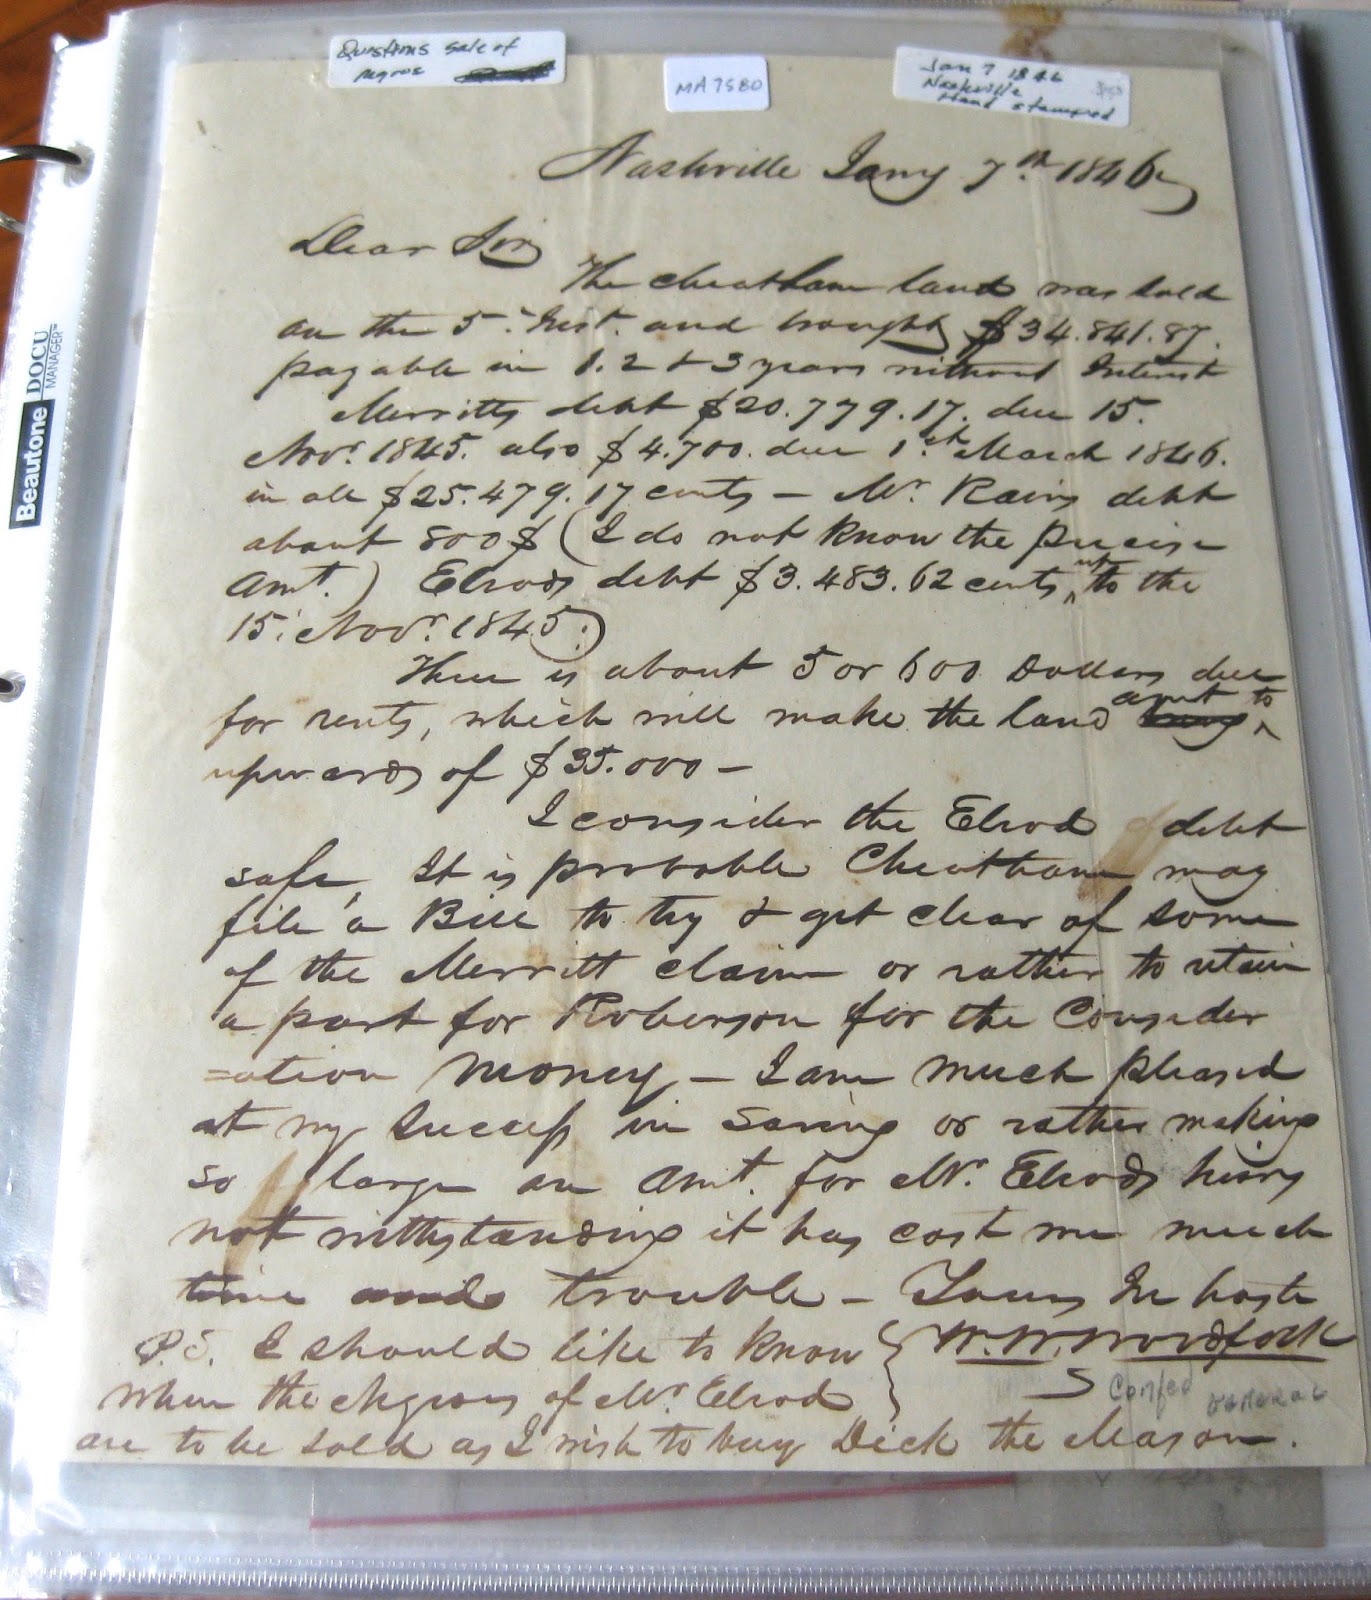 Questions sale of
negroe
MA7580
Jan 7 1846
Nashville
Hand stamped
Beautone DOCU
MANAGER™
Nashville Jany 7th 1846
Dear Sir
The Cheatham land was sold
on the 5th Inst. and brought $34.841.87.
payable in 1. 2 & 3 years without Interest
Merritts debt $20.779.17. due 15.
Novr. 1845. also $4.700. due 1st March 1846.
in all $25.479.17 cents – Mr. Rains debt
about 800$ (I do not know the precise
amt.) Elrods debt $3.483.62 cents, up to the
15: Novr. 1845.)
There is about 5 or 600 Dollars due
for rents, which will make the land amt to
upwards of $35.000 –
I consider the Elrod debt
safe, It is probable Cheatham may
file a Bill to try & get clear of some
of the Merritt claim or rather to retain
a part for Roberson for the Consider
=ation money – I am much pleased
at my success in saving or rather making
so large an amt. for Mr. Elrods heirs
not withstanding it has cost me much
time and trouble – Yours In haste
W. W. Woodfolk
P.S. I should like to know
when the Negroes of Mr Elrod
are to be sold as I wish to buy Dick the Mason.
Confed General